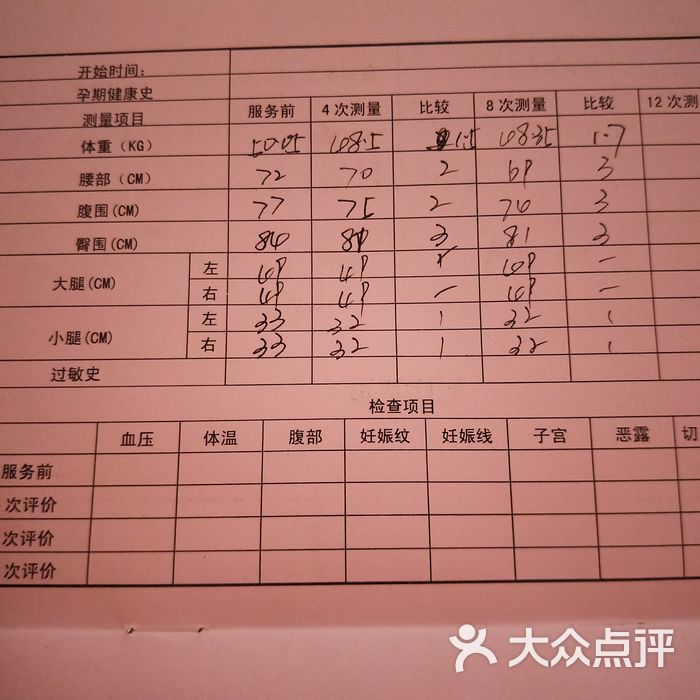 开始时间：
孕期健康史
测量项目 服务前 4次测量 比较 8次测量 比较 12次测
体重（KG） 50.05 48.5 1.5 48.35 1.7
腰部（CM） 72 70 2 69 3
腹围(CM) 77 75 2 74 3
臀围(CM) 84 81 3 81 3
大腿(CM) 左 49 49 49 —
右 49 49 — 49 —
小腿(CM) 左 33 32 1 32 1
右 33 32 1 32 1
过敏史
检查项目
血压 体温 腹部 妊娠纹 妊娠线 子宫 恶露 切
服务前
次评价
次评价
次评价
大众点评